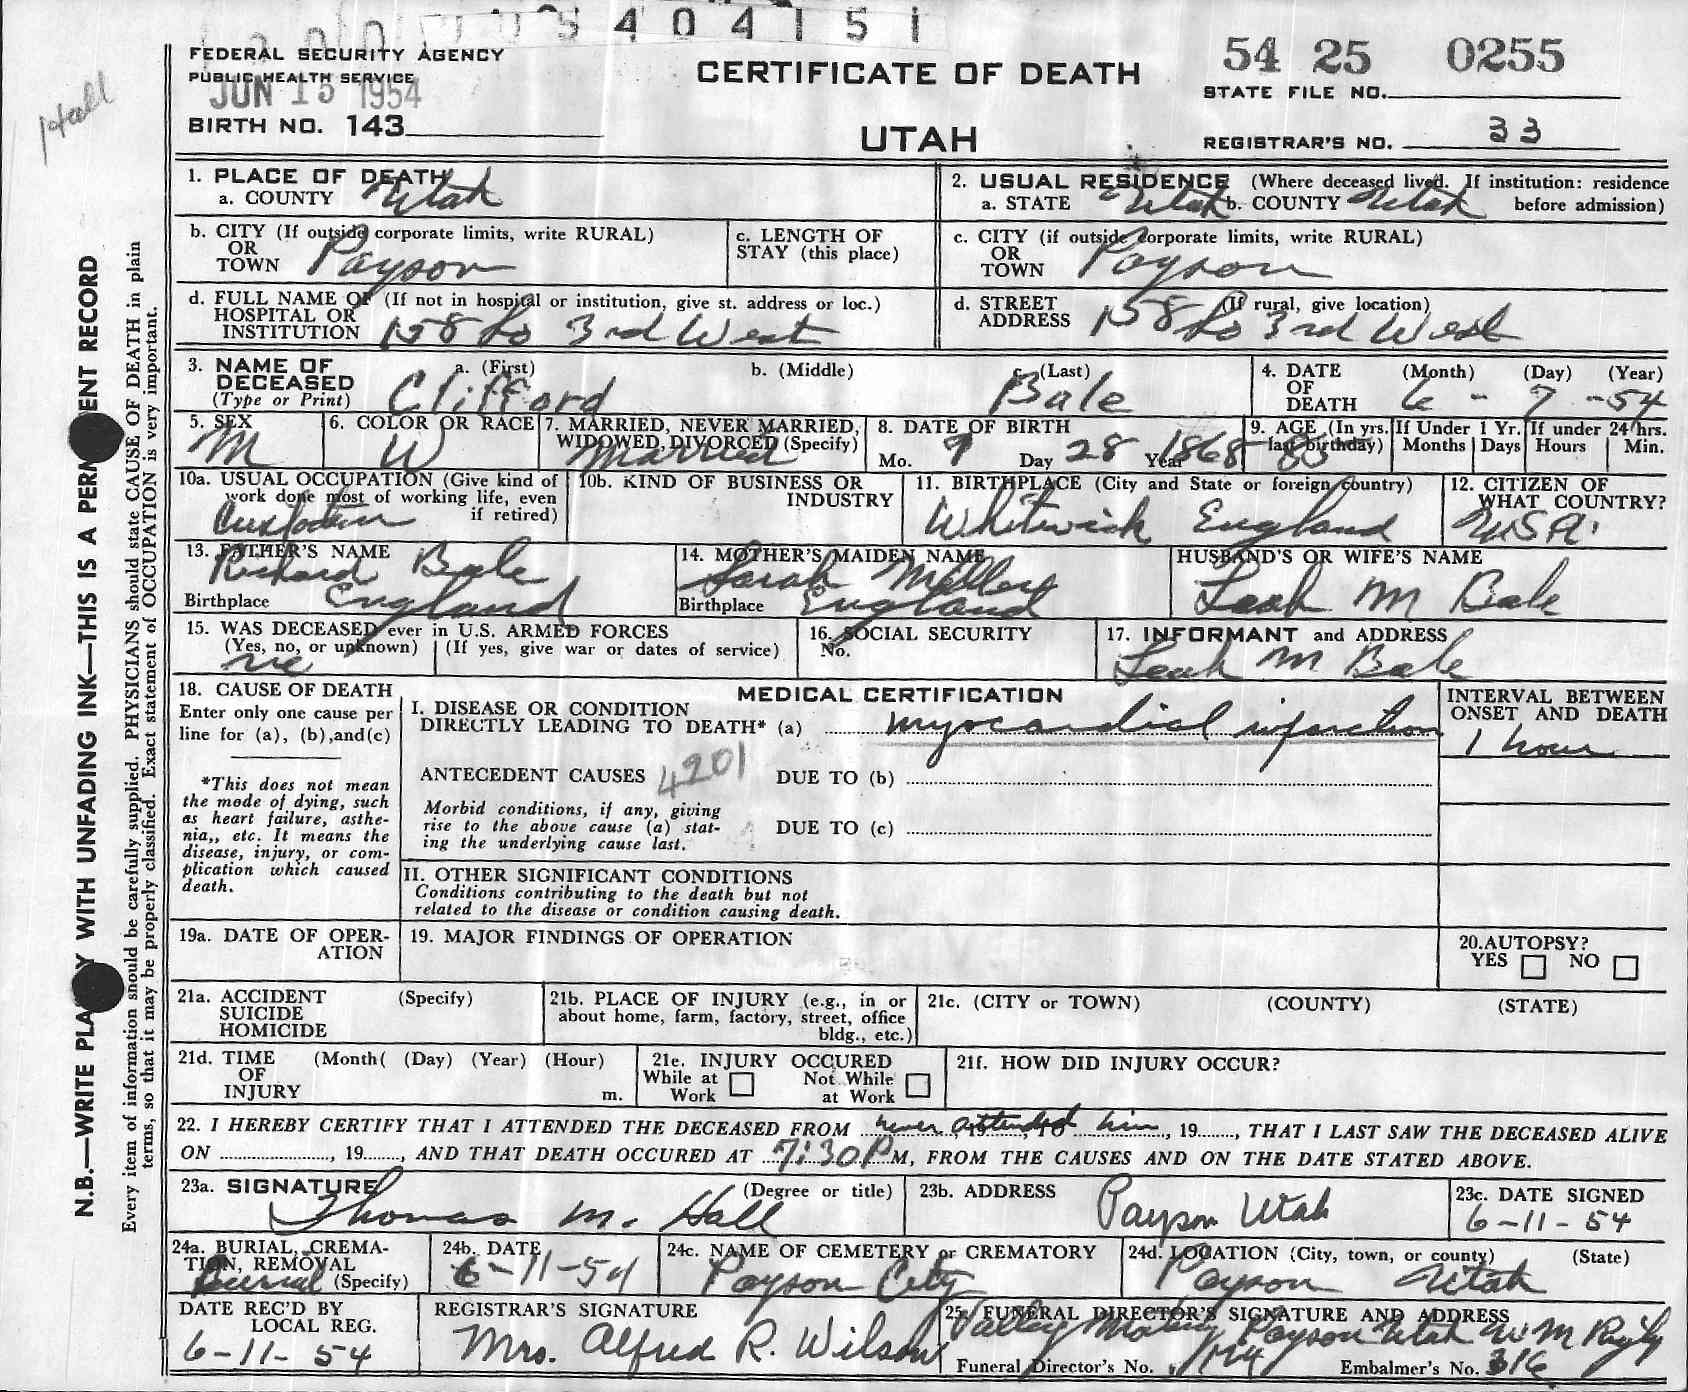 5 4 0 4 1 5 1
Hall
FEDERAL SECURITY AGENCY
PUBLIC HEALTH SERVICE
JUN 15 1954
BIRTH NO. 143
CERTIFICATE OF DEATH
UTAH
54 25 0255
STATE FILE NO.
REGISTRAR'S NO. 33
N.B.—WRITE PLA Y WITH UNFADING INK—THIS IS A PERM ENT RECORD
Every item of information should be carefully supplied. PHYSICIANS should state CAUSE OF DEATH in plain
terms, so that it may be properly classified. Exact statement of OCCUPATION is very important.
1. PLACE OF DEATH
a. COUNTY Utah
2. USUAL RESIDENCE (Where deceased lived. If institution: residence
a. STATE Utah b. COUNTY Utah before admission)
b. CITY (If outside corporate limits, write RURAL)
OR
TOWN Payson
c. LENGTH OF
STAY (this place)
c. CITY (if outside corporate limits, write RURAL)
OR
TOWN Payson
d. FULL NAME OF (If not in hospital or institution, give st. address or loc.)
HOSPITAL OR
INSTITUTION 158 So 3rd West
d. STREET (If rural, give location)
ADDRESS 158 So 3rd West
3. NAME OF
DECEASED
(Type or Print)
a. (First) b. (Middle) c. (Last)
Clifford Bale
4. DATE (Month) (Day) (Year)
OF
DEATH 6 - 7 - 54
5. SEX
M
6. COLOR OR RACE
W
7. MARRIED, NEVER MARRIED,
WIDOWED, DIVORCED (Specify)
Married
8. DATE OF BIRTH
Mo. 9 Day 28 Year 1868
9. AGE (In yrs.
last birthday) 85
If Under 1 Yr.
Months Days
If under 24 hrs.
Hours Min.
10a. USUAL OCCUPATION (Give kind of
work done most of working life, even
if retired)
Custodian
10b. KIND OF BUSINESS OR
INDUSTRY
11. BIRTHPLACE (City and State or foreign country)
Whitwick England
12. CITIZEN OF
WHAT COUNTRY?
USA.
13. FATHER'S NAME
Richard Bale
Birthplace England
14. MOTHER'S MAIDEN NAME
Sarah
Birthplace England
HUSBAND'S OR WIFE'S NAME
Leah M Bale
15. WAS DECEASED ever in U.S. ARMED FORCES
(Yes, no, or unknown) (If yes, give war or dates of service)
no
16. SOCIAL SECURITY
No.
17. INFORMANT and ADDRESS
Leah M Bale
18. CAUSE OF DEATH
Enter only one cause per
line for (a), (b),and(c)
*This does not mean
the mode of dying, such
as heart failure, asthe-
nia,, etc. It means the
disease, injury, or com-
plication which caused
death.
MEDICAL CERTIFICATION
I. DISEASE OR CONDITION
DIRECTLY LEADING TO DEATH* (a) myocardial infarction
INTERVAL BETWEEN
ONSET AND DEATH
1 hour
ANTECEDENT CAUSES 4201 DUE TO (b)
Morbid conditions, if any, giving
rise to the above cause (a) stat-
ing the underlying cause last.
DUE TO (c)
II. OTHER SIGNIFICANT CONDITIONS
Conditions contributing to the death but not
related to the disease or condition causing death.
19a. DATE OF OPER-
ATION
19. MAJOR FINDINGS OF OPERATION
20.AUTOPSY?
YES NO
21a. ACCIDENT (Specify)
SUICIDE
HOMICIDE
21b. PLACE OF INJURY (e.g., in or
about home, farm, factory, street, office
bldg., etc.)
21c. (CITY or TOWN) (COUNTY) (STATE)
21d. TIME (Month( (Day) (Year) (Hour)
OF
INJURY m.
21e. INJURY OCCURED
While at Not While
Work at Work
21f. HOW DID INJURY OCCUR?
22. I HEREBY CERTIFY THAT I ATTENDED THE DECEASED FROM never attended, 19, TO him, 19, THAT I LAST SAW THE DECEASED ALIVE
ON , 19, AND THAT DEATH OCCURED AT 7:30P M, FROM THE CAUSES AND ON THE DATE STATED ABOVE.
23a. SIGNATURE (Degree or title)
Thomas M. Hall
23b. ADDRESS Payson Utah
23c. DATE SIGNED
6-11-54
24a. BURIAL, CREMA-
TION, REMOVAL
Burial (Specify)
24b. DATE
6-11-54
24c. NAME OF CEMETERY or CREMATORY
Payson City
24d. LOCATION (City, town, or county) (State)
Payson Utah
DATE REC'D BY
LOCAL REG.
6-11-54
REGISTRAR'S SIGNATURE
Mrs. Alfred R. Wilson
25. FUNERAL DIRECTOR'S SIGNATURE AND ADDRESS
Valley Payson Utah W M
Funeral Director's No. Embalmer's No. 316